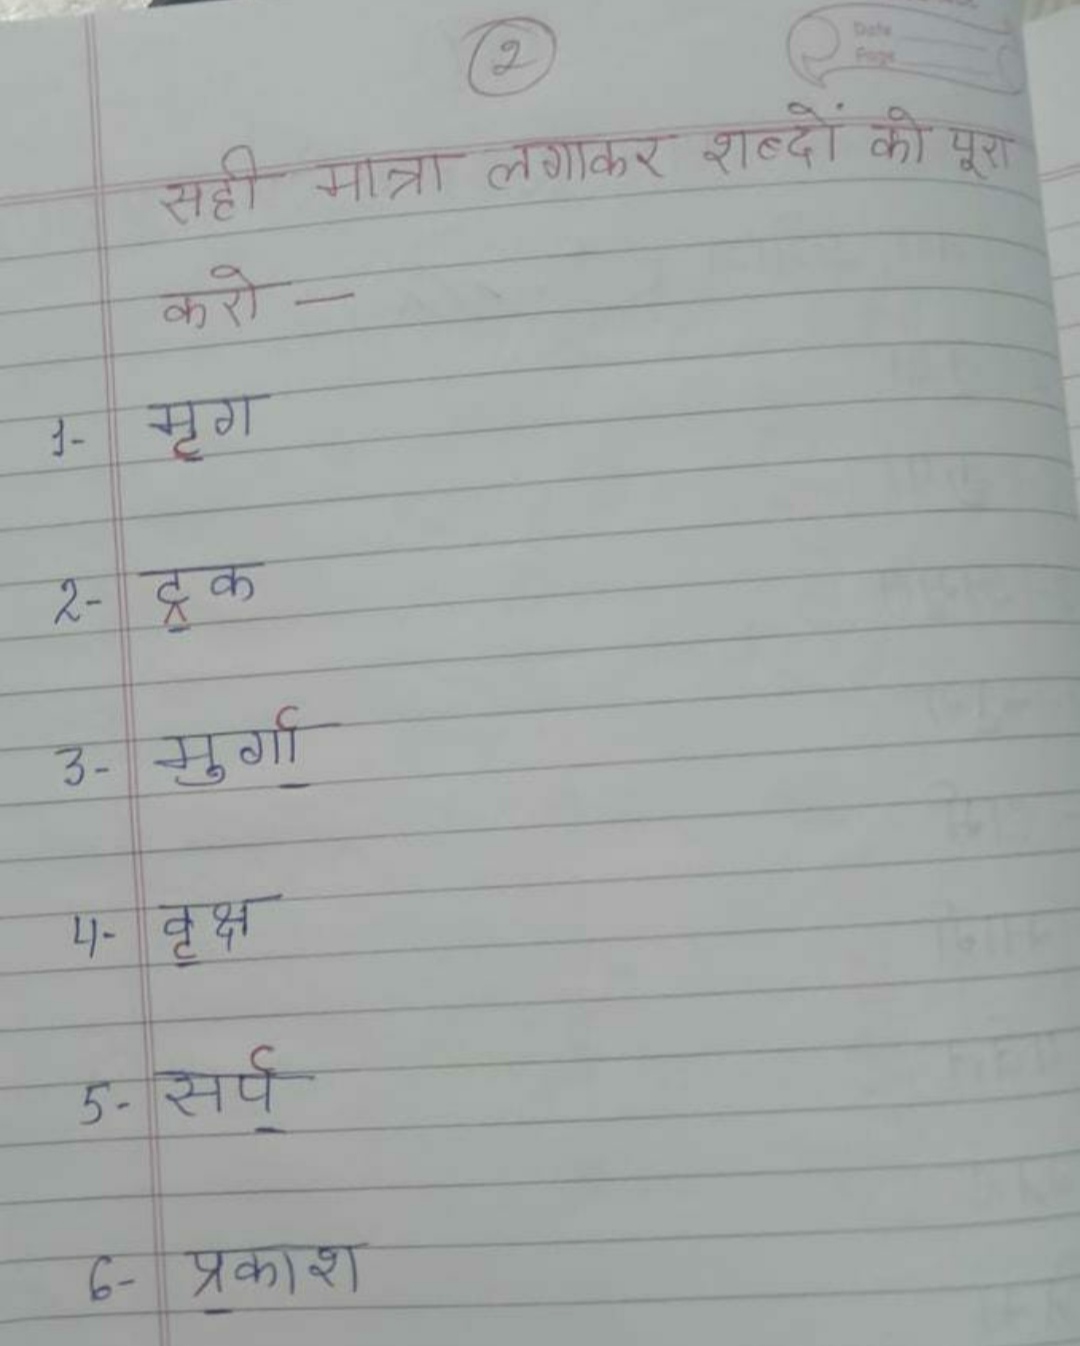 2
Date
Page
सही मात्रा लगाकर शब्दों को पूरा
करो —
1- मृग
2- ट्रक
3- मुर्गा
4- वृक्ष
5- सर्प
6- प्रकाश